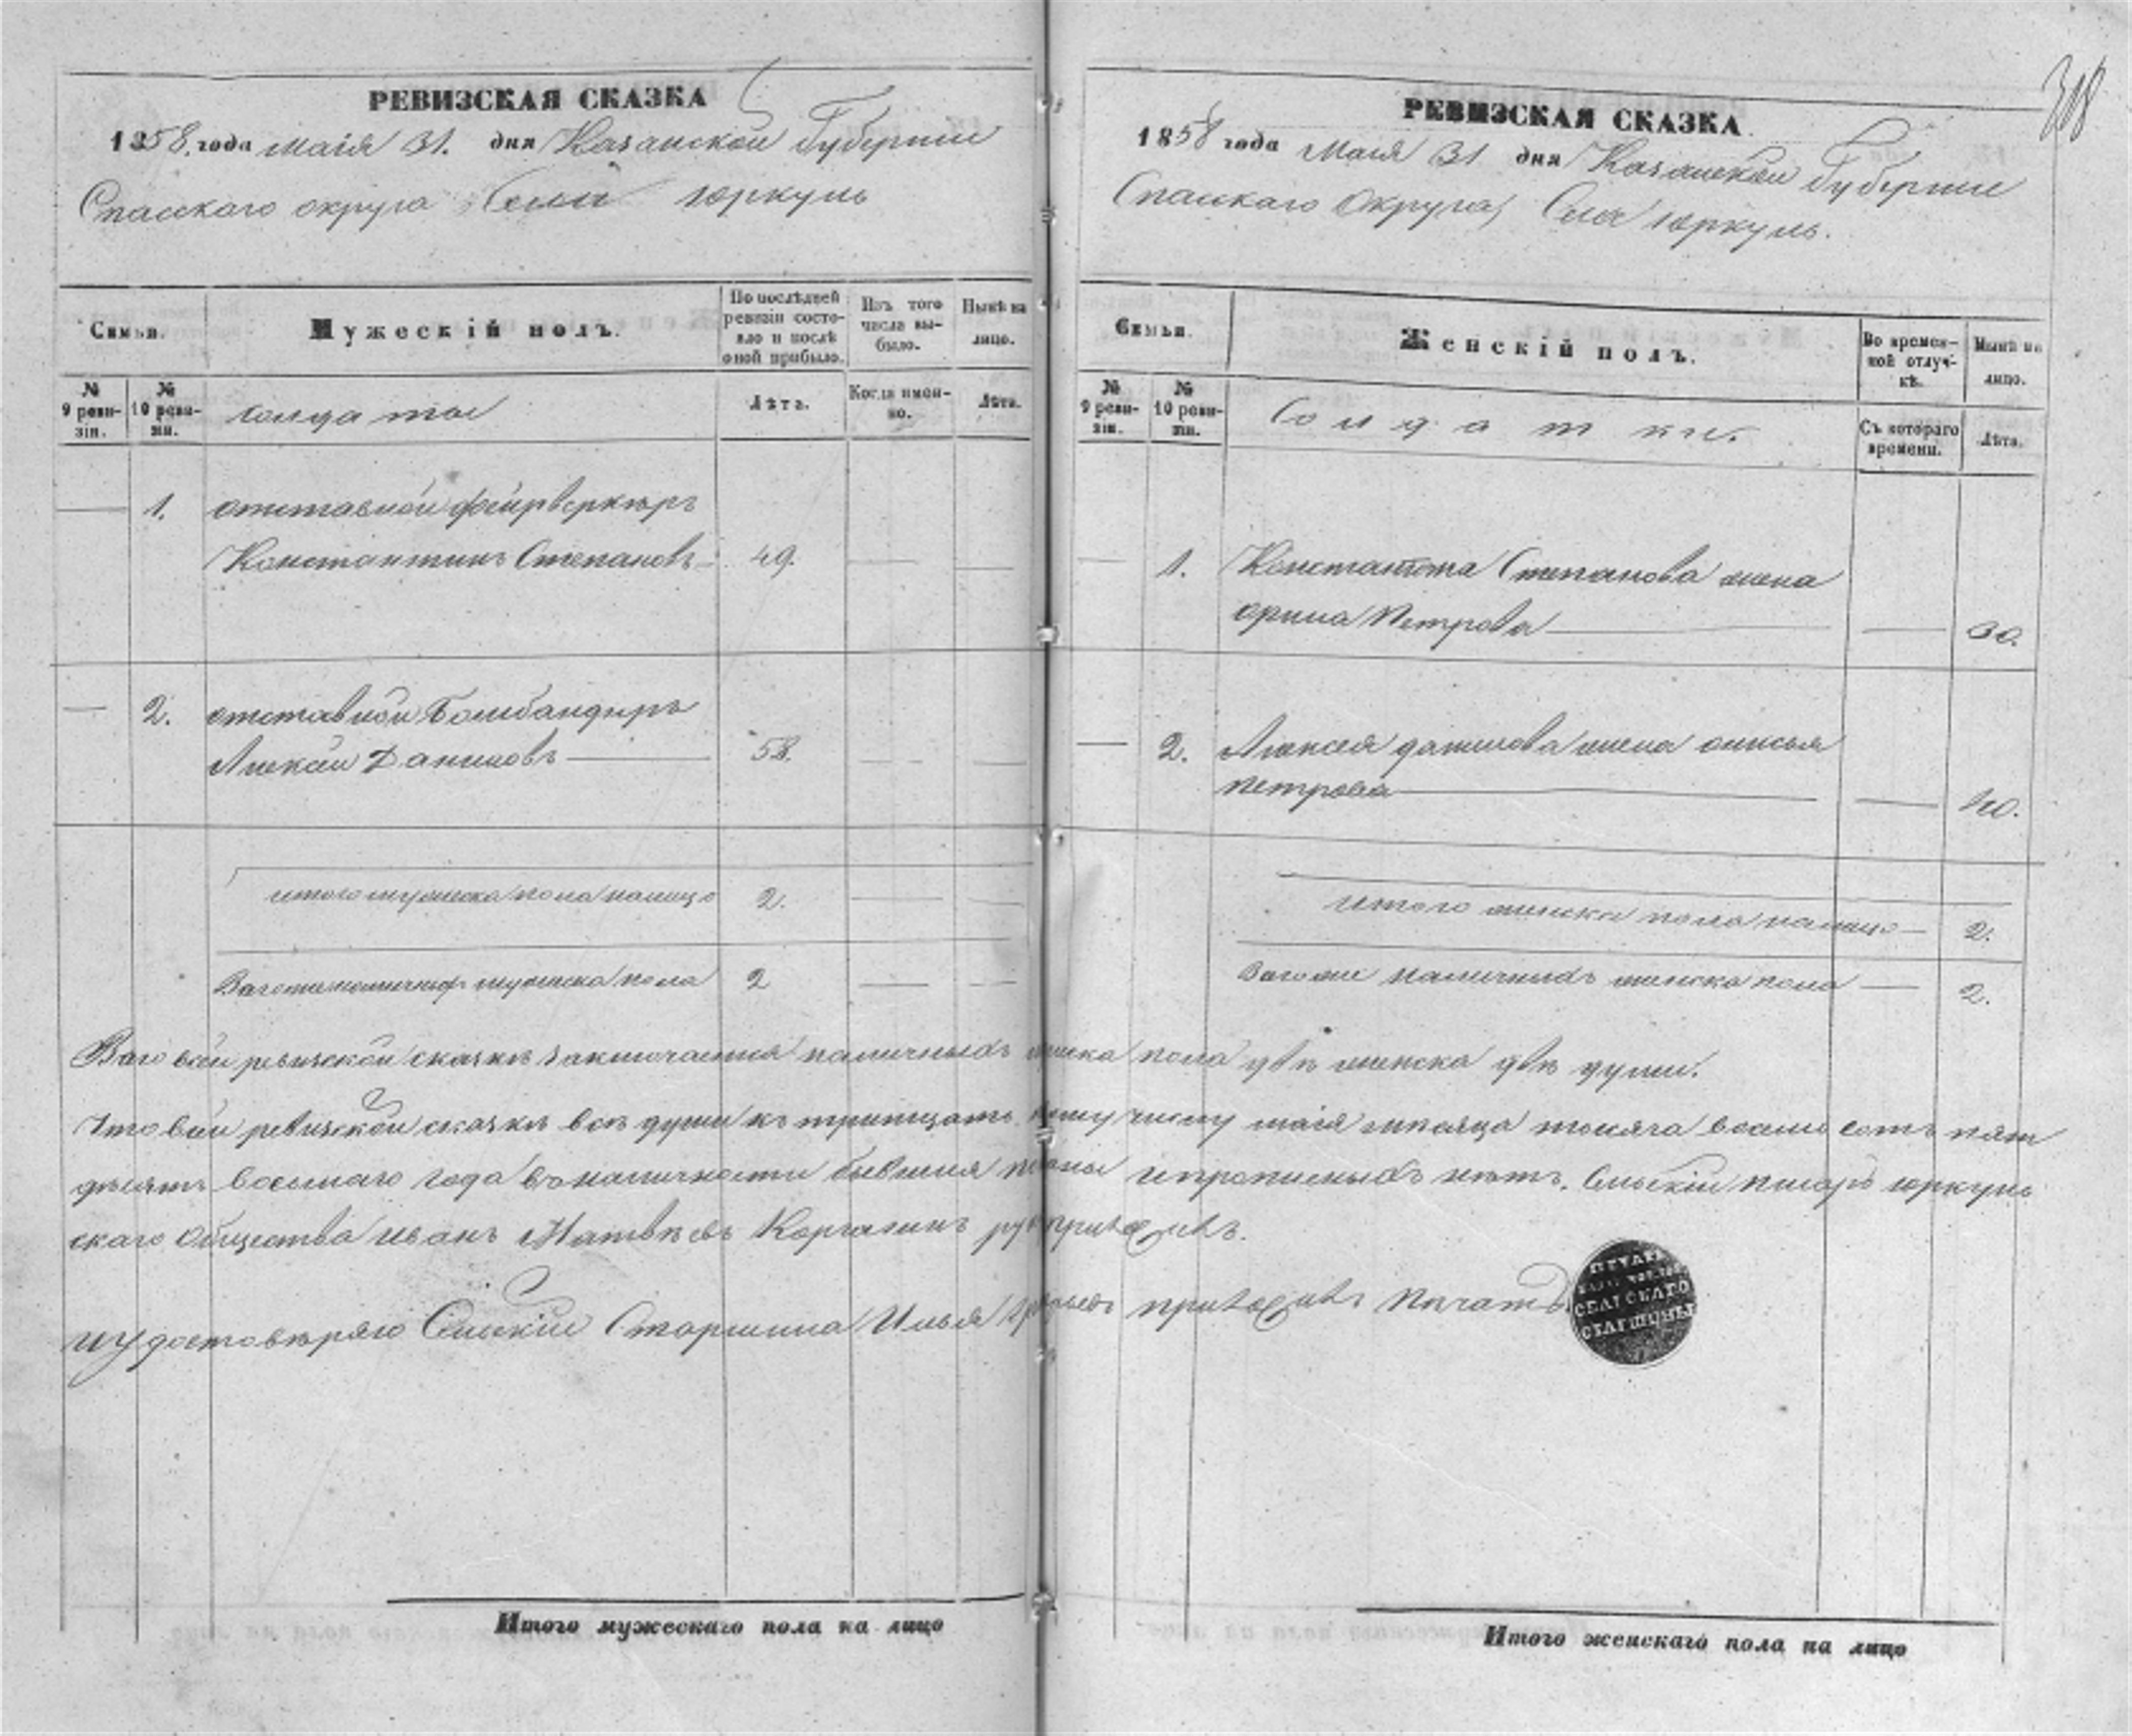 РЕВИЗСКАЯ СКАЗКА
1858 года маія 31. дня Казанской Губерніи
Спасскаго округа Села Юркуль
Семьи.
Мужескій полъ.
По послѣдней ревизіи состояло и послѣ оной прибыло.
Изъ того числа выбыло.
Нынѣ на лицо.
№ 9 ревизіи.
№ 10 ревизіи.
солдаты
Лѣта.
Когда именно.
Лѣта.
1. отставной фейрверкеръ
Константинъ Степановъ 49.
2. отставной Бомбандиръ
Алексей Даниловъ 58.
итого мужеска пола налицо 2.
Всего наличныхъ мужеска пола 2
Итого мужескаго пола на лицо
318
РЕВИЗСКАЯ СКАЗКА
1858 года Маія 31 дня Казанской Губерніи
Спасскаго Округа, Села Юркуль.
Семьи.
Женскій полъ.
Во временной отлучкѣ.
Нынѣ на лицо.
№ 9 ревизіи.
№ 10 ревизіи.
Солдатки.
Съ котораго времени.
Лѣта.
1. Константина Степанова жена
орина Петрова 30.
2. Алексея данилова жена
петрова 40.
итого женска пола налицо 2.
наличныхъ женска пола 2.
ревизской сказкѣ заключается наличныхъ пола двѣ женска двѣ души.
Что в сей ревизской сказкѣ всѣ души къ тритцать числу маія месяца тысяча восемь сотъ пят
десятъ восьмаго года въ наличности бывшия и прописныхъ нѣтъ. Сельскій писарь юркуль
скаго общества иванъ Матвѣевъ приложилъ.
удостовѣряю Сельскій Старшина Илья приложилъ печать
СЕЛЬСКАГО
СТАРШИНЫ
Итого женскаго пола на лицо